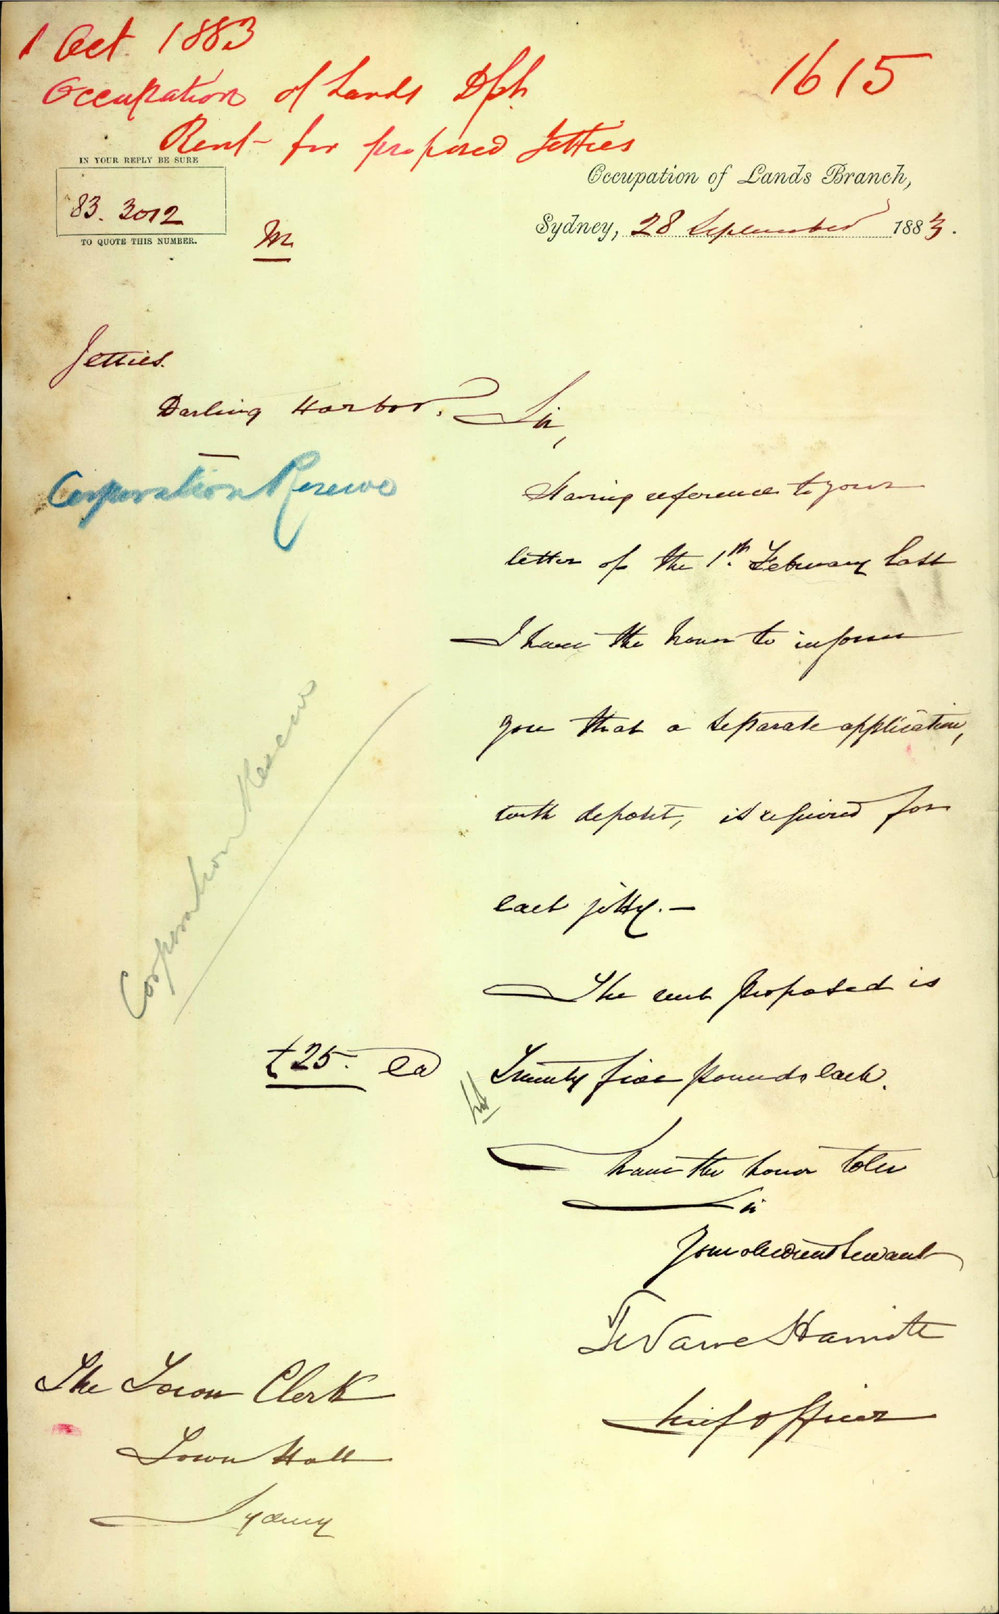 1 Oct 1883
1615
Occupation of Lands Dpt.
Rent for proposed Jetties
IN YOUR REPLY BE SURE
83. 3012
TO QUOTE THIS NUMBER.
M
Occupation of Lands Branch,
Sydney, 28 September 1883.
Jetties.
Darling Harbor.
Corporation Reserve
Sir,
Having reference to your
letter of the 1th. February last
I have the honor to inform
you that a separate application,
with deposit, is required for
each jetty.—
Corporation Reserve
The rent proposed is
£25. ea
Twenty five pounds each.
have the honor to be
Sir
Your obedient Servant
Chief Officer
The Town Clerk
Town Hall
Sydney